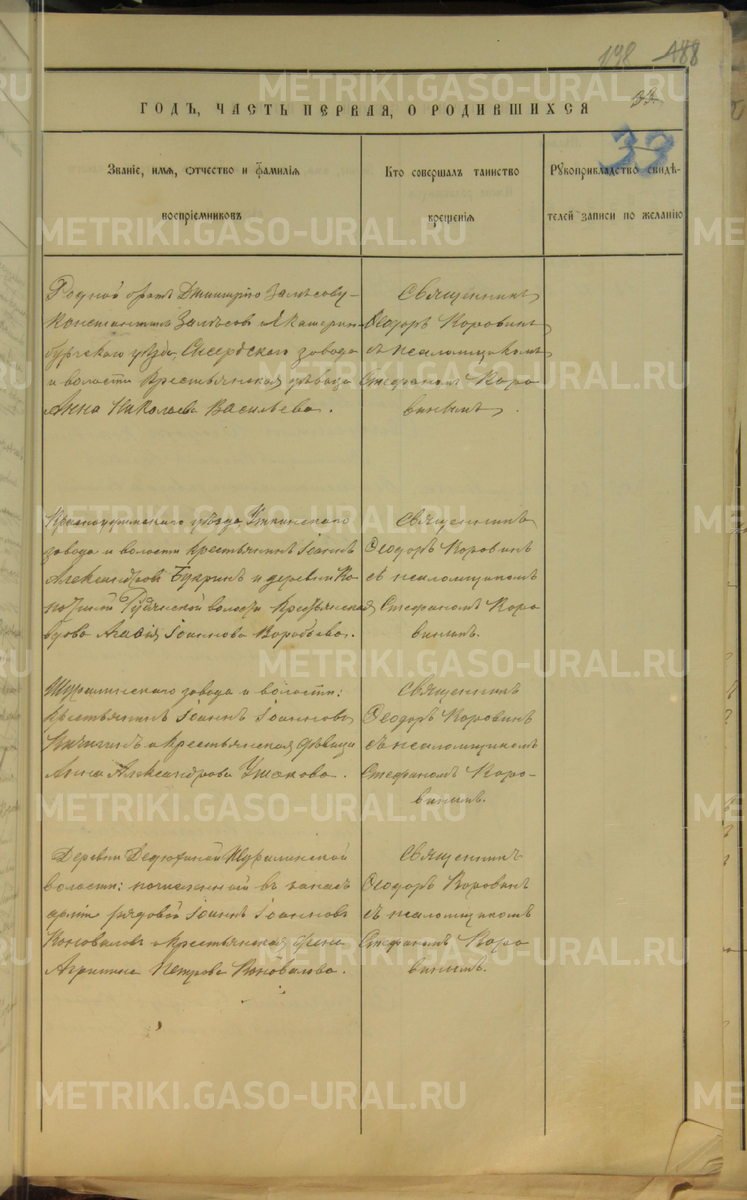 198 188
ГОДЪ, ЧАСТЬ ПЕРВАЯ, О РОДИВШИХСЯ
33
Званіе, имя, отчество и фамилія
воспріемниковъ
Кто совершалъ таинство
крещенія
Рукоприкладство свидѣ-
телей записи по желанію
Родной братъ Дмитрію Залѣсову-
Константинъ Залѣсовъ и Екатерин-
бургскаго уѣзда, Сысертскаго завода
и волости крестьянская дѣвица
Анна Николаева Васильева.
Священникъ
Ѳеодоръ Коровинъ
съ псаломщикомъ
Стефаномъ Коро
винымъ.
Красноуфимскаго уѣзда, Уткинскаго
завода и волости крестьянинъ Іоаннъ
Александровъ и деревни
волости Крестьянская
вдова Агаѳія Іоаннова Воробьева.
Священникъ
Ѳеодоръ Коровинъ
съ псаломщикомъ
Стефаномъ Коро
винымъ.
Шуралинскаго завода и волости:
крестьянинъ Іоаннъ Іоанновъ
и крестьянская дѣвица
Анна Александрова Ушакова.
Священникъ
Ѳеодоръ Коровинъ
съ псаломщикомъ
Стефаномъ Коро-
винымъ.
Деревни Шуралинской
волости: въ запасъ
арміи рядовой Іоаннъ Іоанновъ
Коноваловъ и крестьянская жена
Агрипина Петрова Коновалова.
Священникъ
Ѳеодоръ Коровинъ
съ псаломщикомъ
Стефаномъ Коро
винымъ.
METRIKI.GASO-URAL.RU